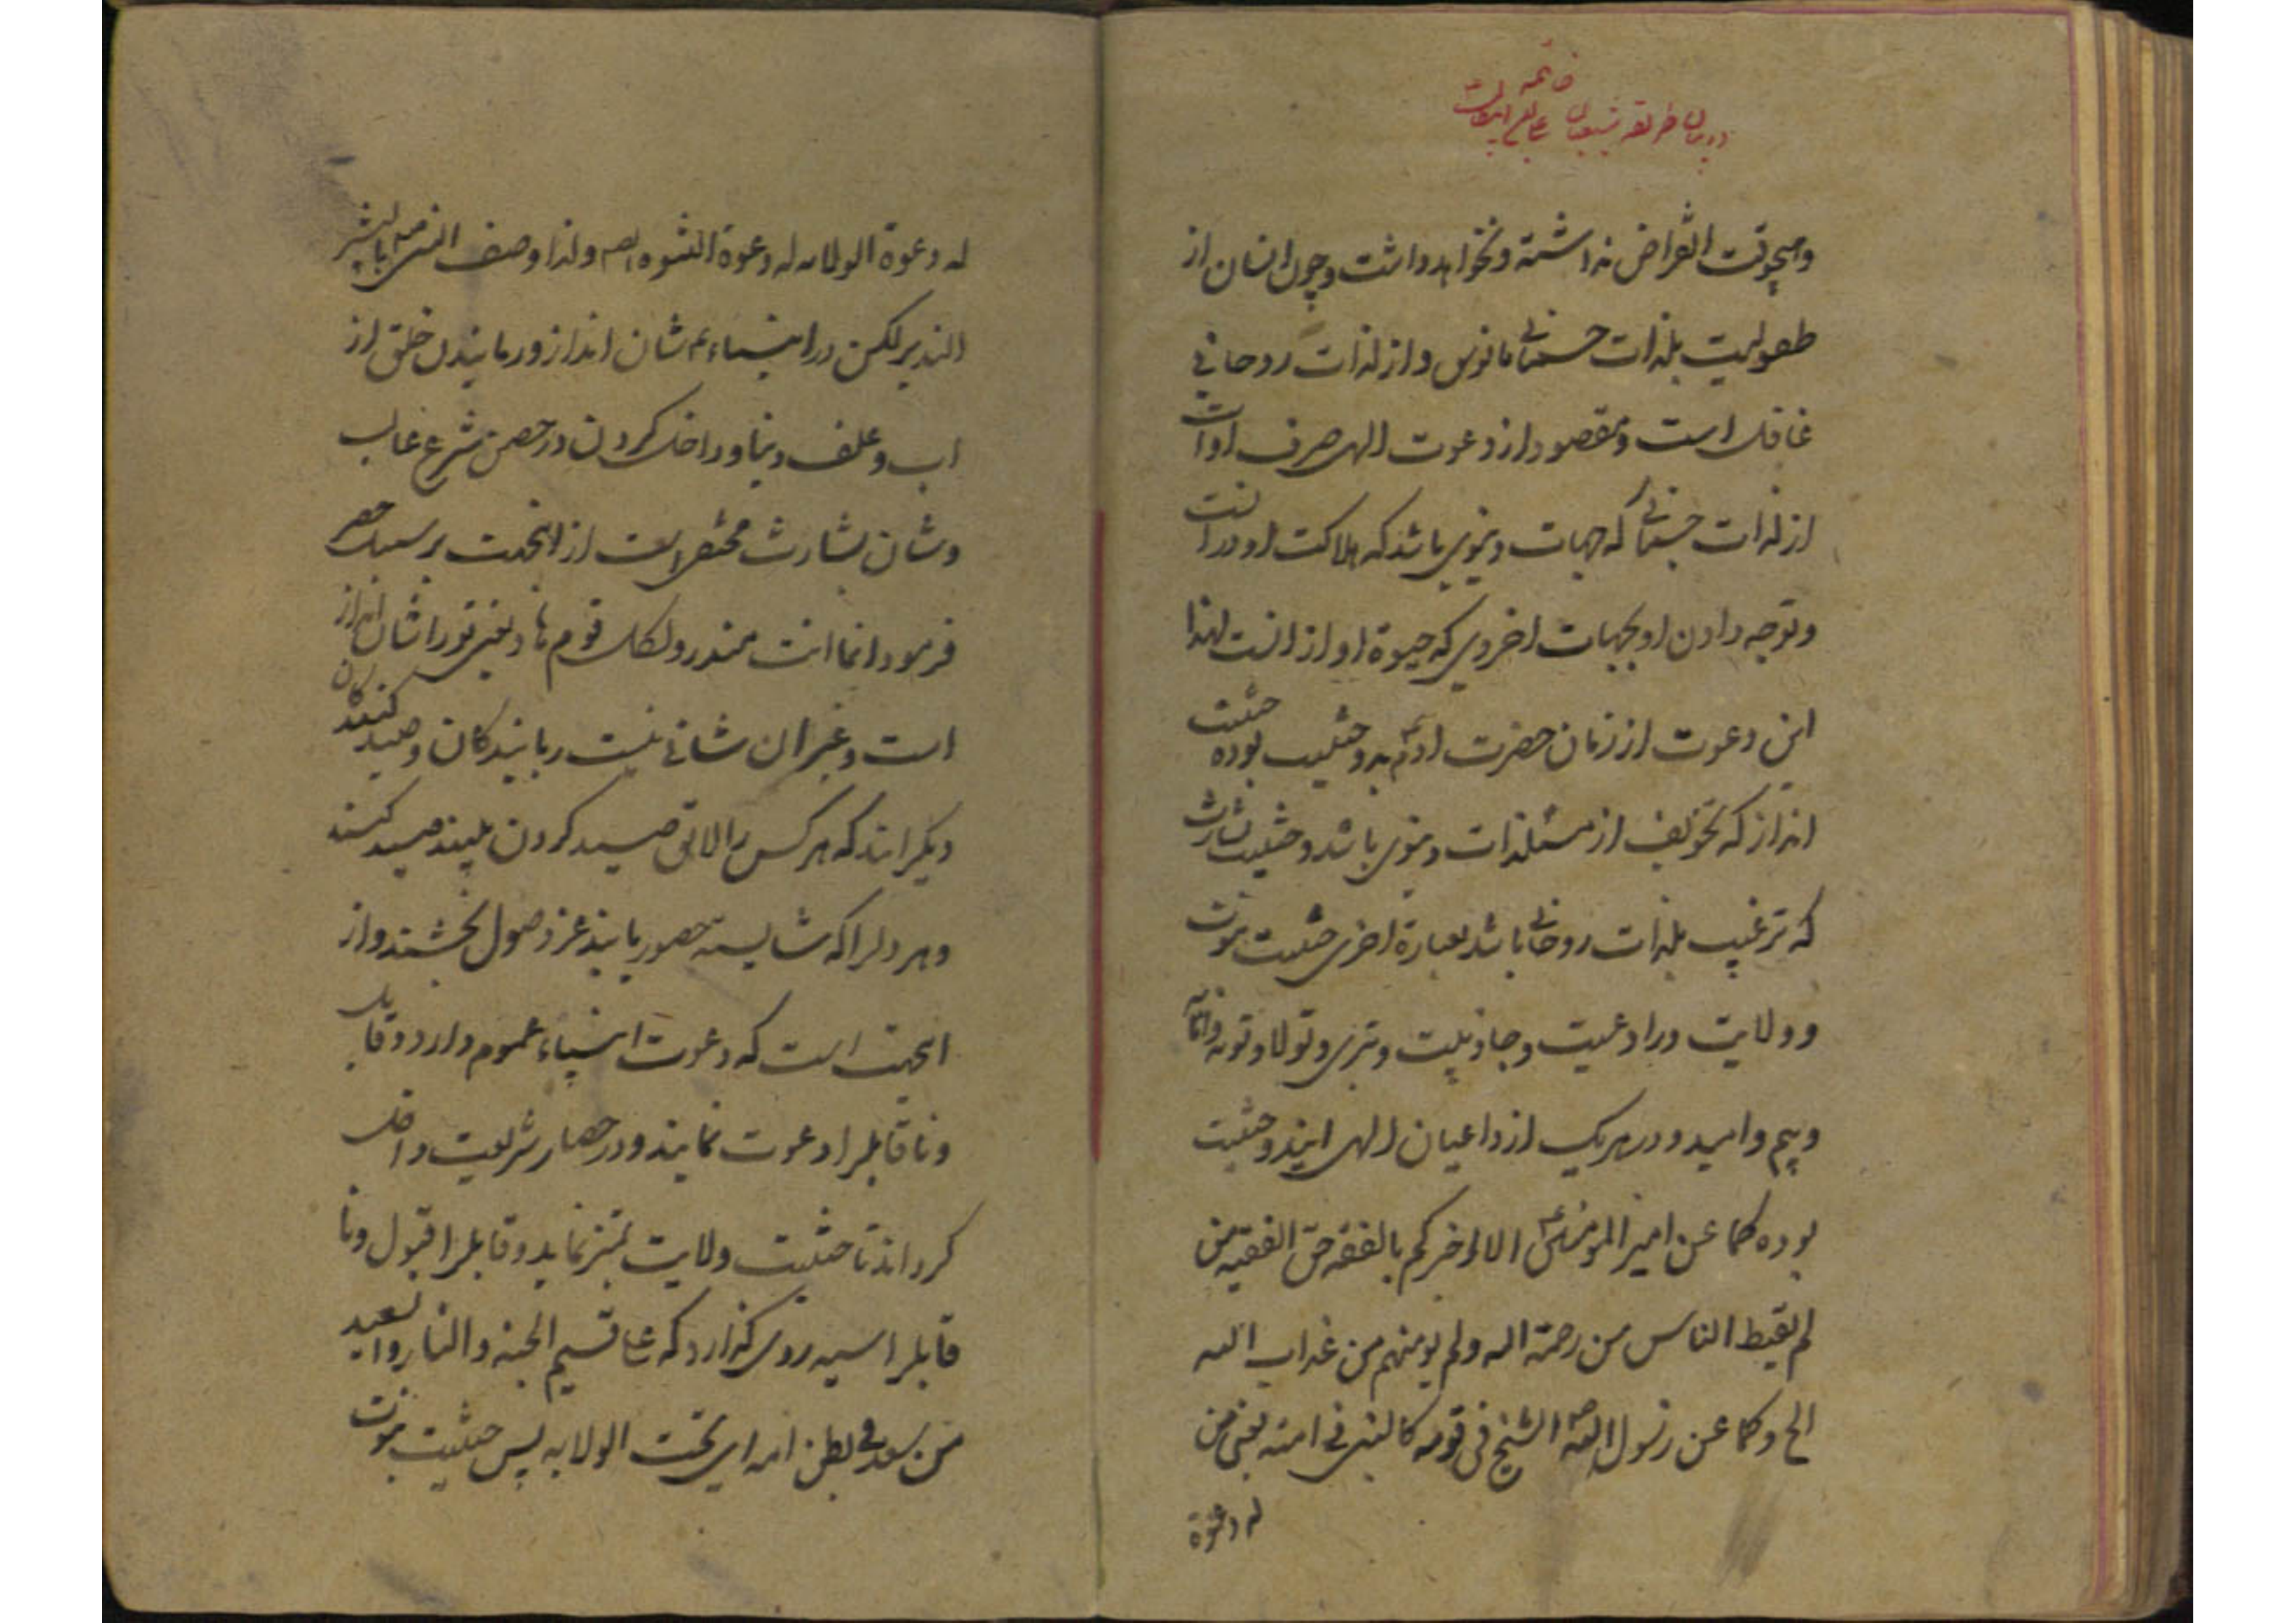 خاتمه
در بیان طریقه شیعیان علی علیه
وهیچوقت انقراض نداشته ونخواهد داشت وچون انسان از
طفولیت بلذات جسمانی مانوس واز لذات روحانی
غافل است ومقصود از دعوت الهی صرف اوات
از لذات جسمانی که جهات دنیوی باشد که هلاکت او در انست
وتوجه دادن او بجهات اخروی که حیوة او از انست لهذا
این دعوت از زمان حضرت ادم بدو حثیت بوده حثیت
انذار که تخویف از مستلذات دنیوی باشد وحثیت بشارت
که ترغیب بلذات روحانی باشد بعبارة اخری حثیت نبوت
وولایت ورادعیت وجاذبیت وتبری وتولا وتوبه وانابه
وبیم وامید ودر هریک از داعیان الهی ایندو حثیت
بوده کما عن امیر المومنین الا اخبرکم بالفقه حق الفقیه من
لم یقنط الناس من رحمة الله ولم یومنهم من عذاب الله
الخ وکما عن رسول الله الشیخ فی قومه کالنبی فی امته یعنی من
له دعوة
له دعوة الولایه له دعوة النبوه ولذا وصف النبی بالبشیر
النذیر لکن در انبیاء شان انذار ورمانیدن خلق از
اب وعلف دنیا وداخل کردن در حصن شرع غالب
وشان بشارت مختفی است از اینجهت بر سبیل حصر
فرمود انما انت منذر ولکل قوم هاد یعنی تورا شان انذار
است وغیر ان شانی نیست ربایندگان وصید کنندگان
دیگرانند که هر کس را لایق صید کردن بینند صید کنند
وهر دلرا که شایسته حضور یابند عز وصول بخشند واز
اینجهت است که دعوت انبیاء عموم دارد وقابل
وناقابلرا دعوت نمایند ودر حصار شریعت داخل
گردانند تا حثیت ولایت تمیز نماید وقابلرا قبول ونا
قابلرا سیه روی گذارد که علی قسیم الجنه والنار والسعید
من سعد فی بطن امه ای تحت الولایه پس حثیت نبوت